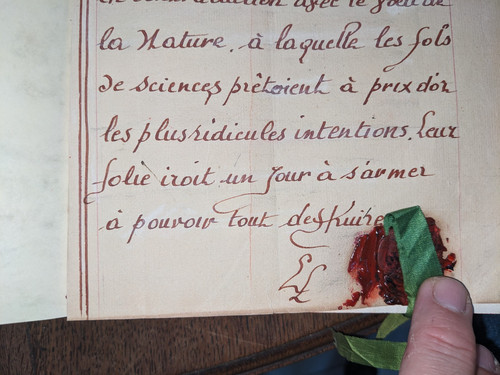 en contradiction avec le voeu de
la Nature, à laquelle les fols
de sciences prêtoient à prix d'or
les plus ridicules intentions. Leur
folie iroit un Jour à s'armer
à pouvoir tout destruire